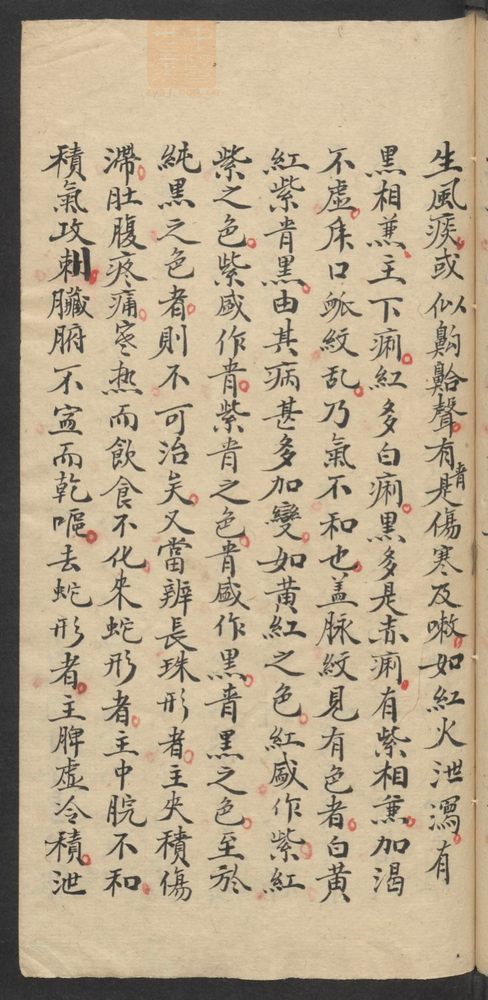 生風痰或似齁鮯聲有青是傷寒及嗽如紅火泄瀉有
黑相蒹主下痢紅多白痢黑多是赤痢有紫相蒹加渴
不虚虎口脈紋乱乃氣不和也盖脉紋見有色者白黄
紅紫青黒由其病甚多加變如黄紅之色紅盛作紫紅
紫之色紫盛作青紫青之色青盛作黒青黒之色至於
純黒之色者則不可治矣又當辨長珠形者主夾積傷
滯肚腹疼痛寒热而飲食不化来蛇形者主中脘不和
積氣攻刺臟腑不寍而乾嘔去蛇形者主脾虚冷積泄